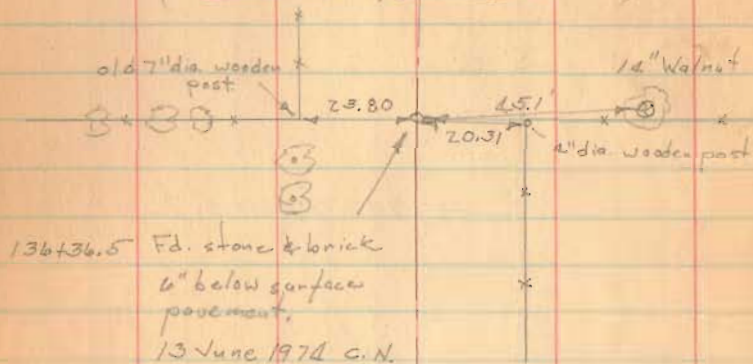 old 7" dia. wooden
post
14" Walnut
23.80
45.1'
20.31
4" dia. wooden post
136+36.5 Fd. stone & brick
6" below surface
pavement.
13 June 1974 C.N.